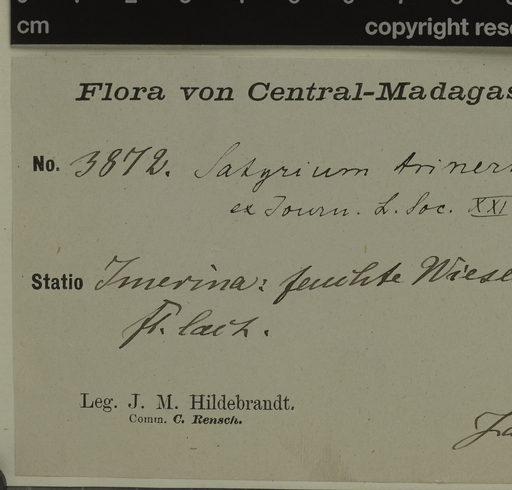 cm copyright rese
Flora von Central-Madagas
No. 3872. Satyrium trinerv
ex Journ. L. Soc. XXI
Statio Imerina: feuchte Wiese
fl. lach.
Leg. J. M. Hildebrandt.
Comm. C. Rensch.